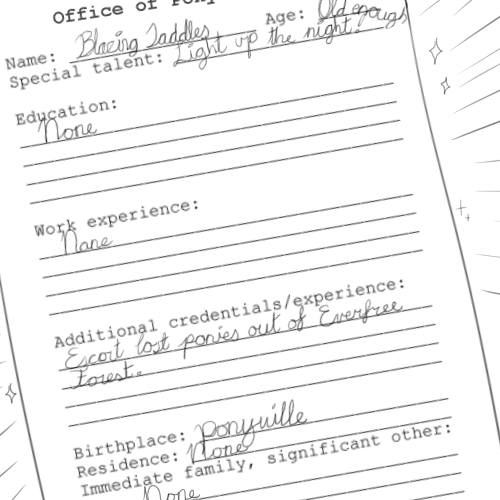 Office of Pony
Name: Blazing Saddles Age: Old enough
Special talent: Light up the night.
Education:
None
Work experience:
None
Additional credentials/experience:
Escort lost ponies out of Everfree
Forest.
Birthplace: Ponyville
Residence: None
Immediate family, significant other:
None